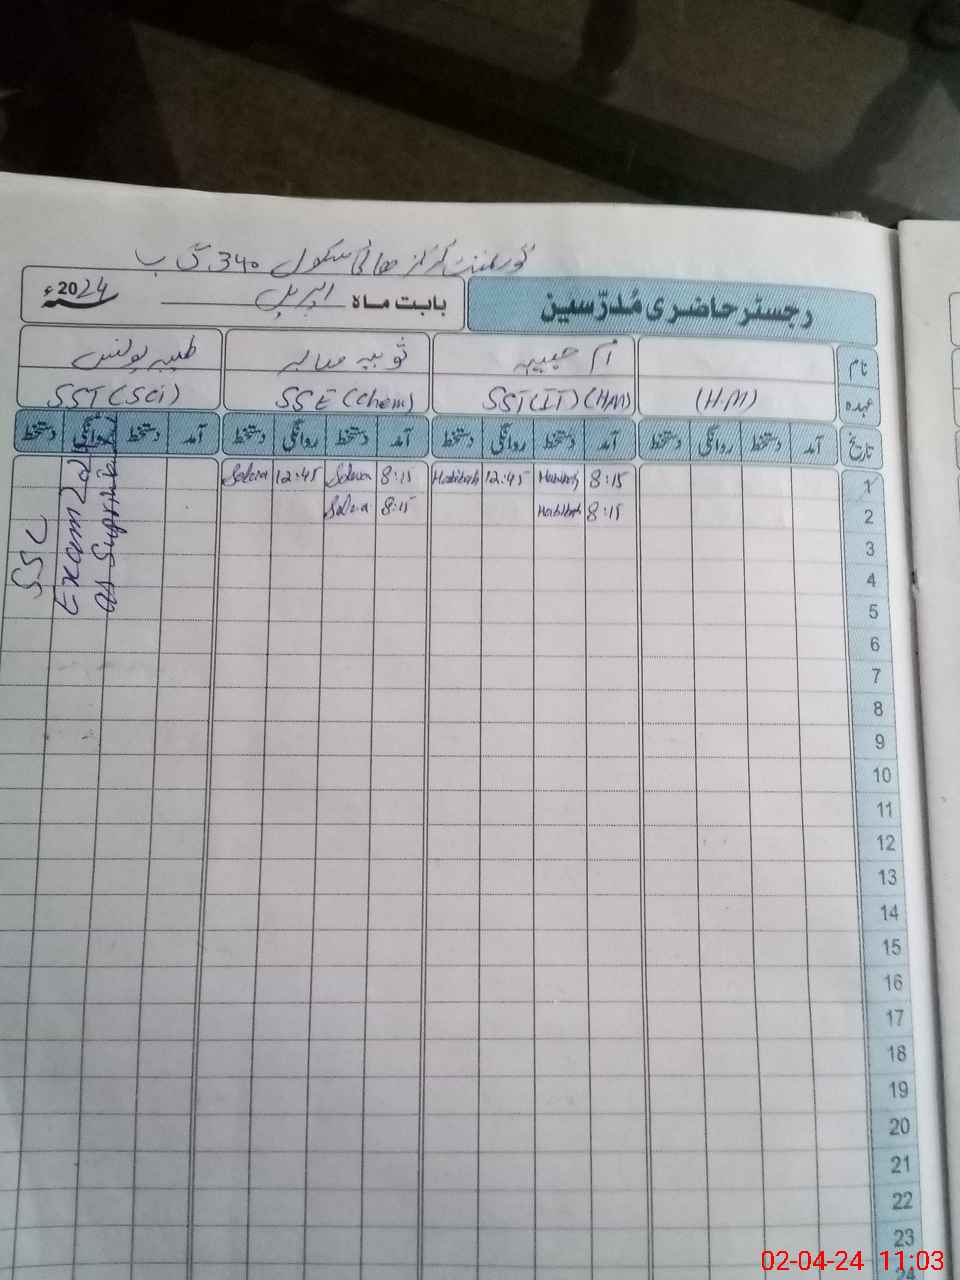 گورنمنٹ گرلز ھائی سکول 340 گ ب
رجسٹر حاضری مُدرّسین
بابت ماہ اپریل 2024ء
نام ام حبیبہ ثوبیہ طیبہ یونس
عہدہ (H.M) SST(IT)(HM) SSE(Chem) SST(Sci)
تاریخ آمد دستخط روانگی دستخط آمد دستخط روانگی دستخط آمد دستخط روانگی دستخط آمد دستخط روانگی دستخط
1 8:15 12:45 Habibah 8:15 12:45
2 8:15 8:15
SSC
Exam 2024
as
3
4
5
6
7
8
9
10
11
12
13
14
15
16
17
18
19
20
21
22
23
24
02-04-24 11:03